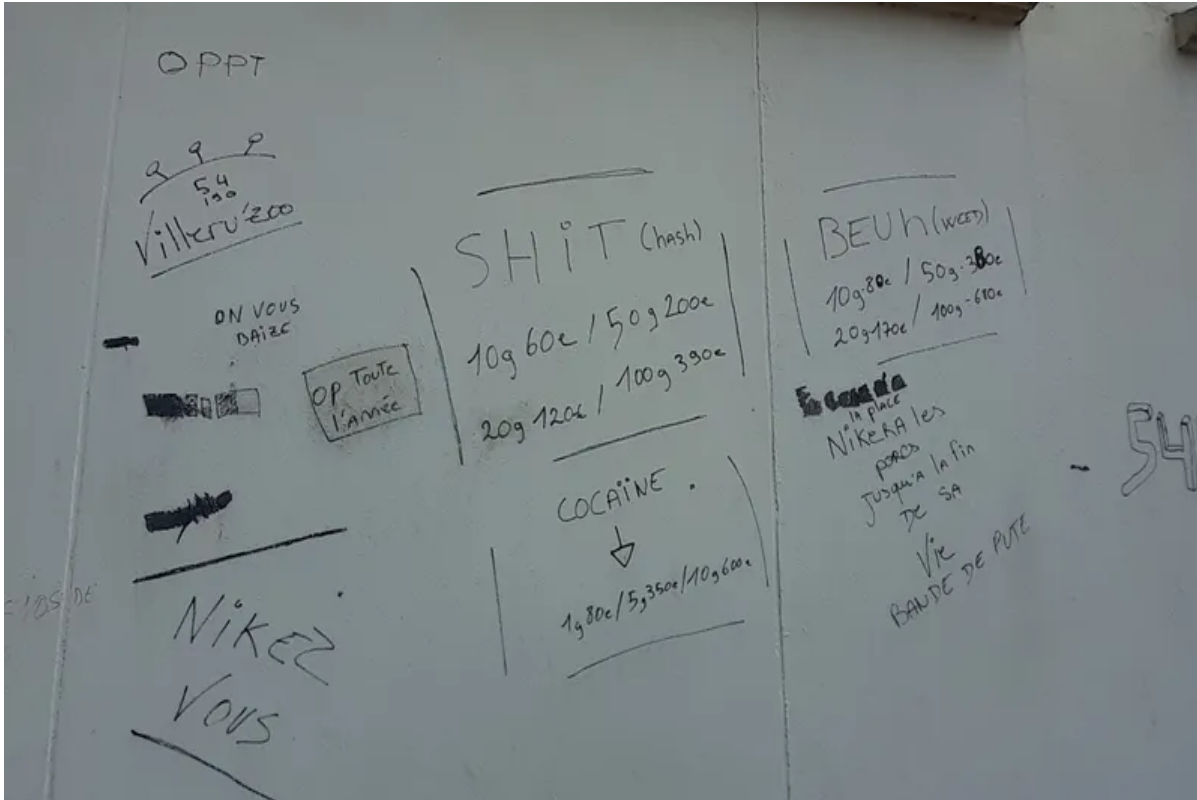 OPPT
54
190
Villeru'zoo
ON VOUS
BAIZE
OP TOUTE
l'ANNéE
NiKEZ
VOUS
SHiT (hAsh)
10g 60e / 50g 200e
20g 120e / 100g 390e
COCAÏNE .
1g 80e / 5g 350e / 10g 600e
BEUh (WEED)
10g 80e / 50g - 380e
20g 170e / 100g - 680e
la PLACE
NiKERA les
PORCS
jusqu'A la fin
DE SA
Vie
BANDE DE PUTE
- 54